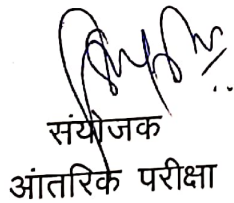 संयोजक
आंतरिक परीक्षा